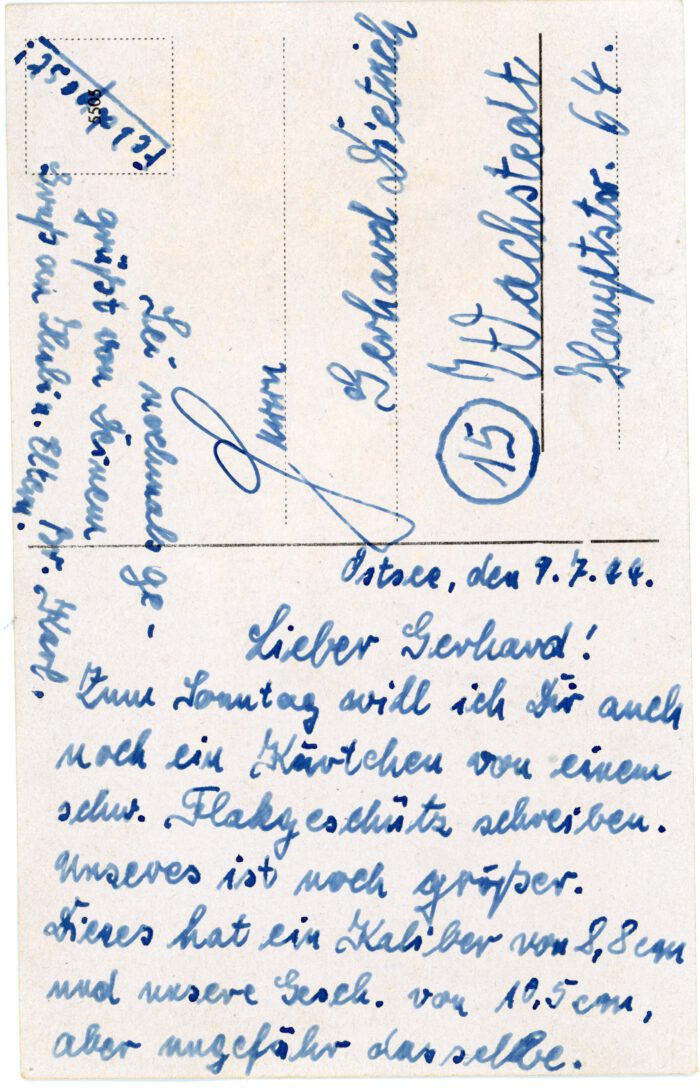 Feldpost!
5505
Herrn
Gerhard Dietrich
(15) Wachstedt
Hauptstr. 64.
Ostsee, den 9.7.44.
Lieber Gerhard!
Zum Sonntag will ich Dir auch
noch ein Kärtchen von einem
schw. Flakgeschütz schreiben.
Unseres ist noch größer.
Dieses hat ein Kaliber von 8,8 cm
und unsere Gesch. von 10,5 cm,
aber ungefähr dasselbe.
Sei nochmals ge-
grüßt von Deinem
Br. Karl.
Gruß an Eltern.